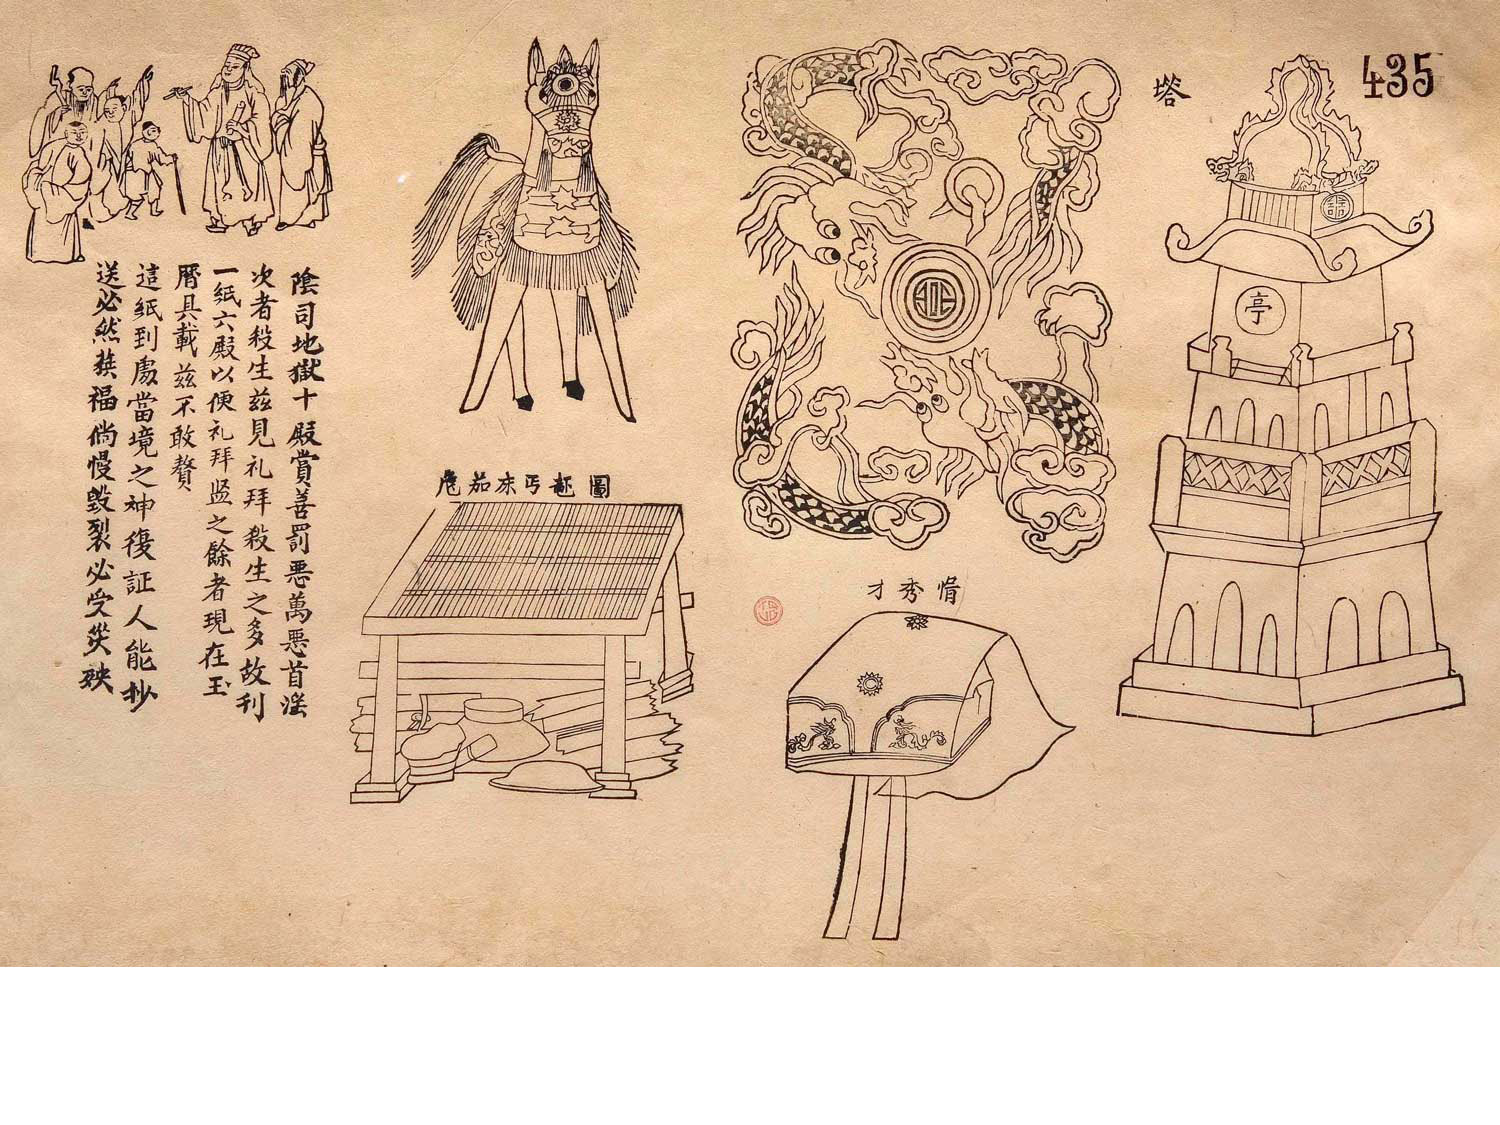 435
塔
亭
陰司地獄十殿賞善罰惡萬惡首淫
次者殺生茲見礼拜殺生之多故刋
一紙六殿以便礼拜監之餘者現在玉
曆具載茲不敢贅
這紙到處當境之神復証人能抄
送必然獲福倘慢毀裂必受災殃
圖
才秀